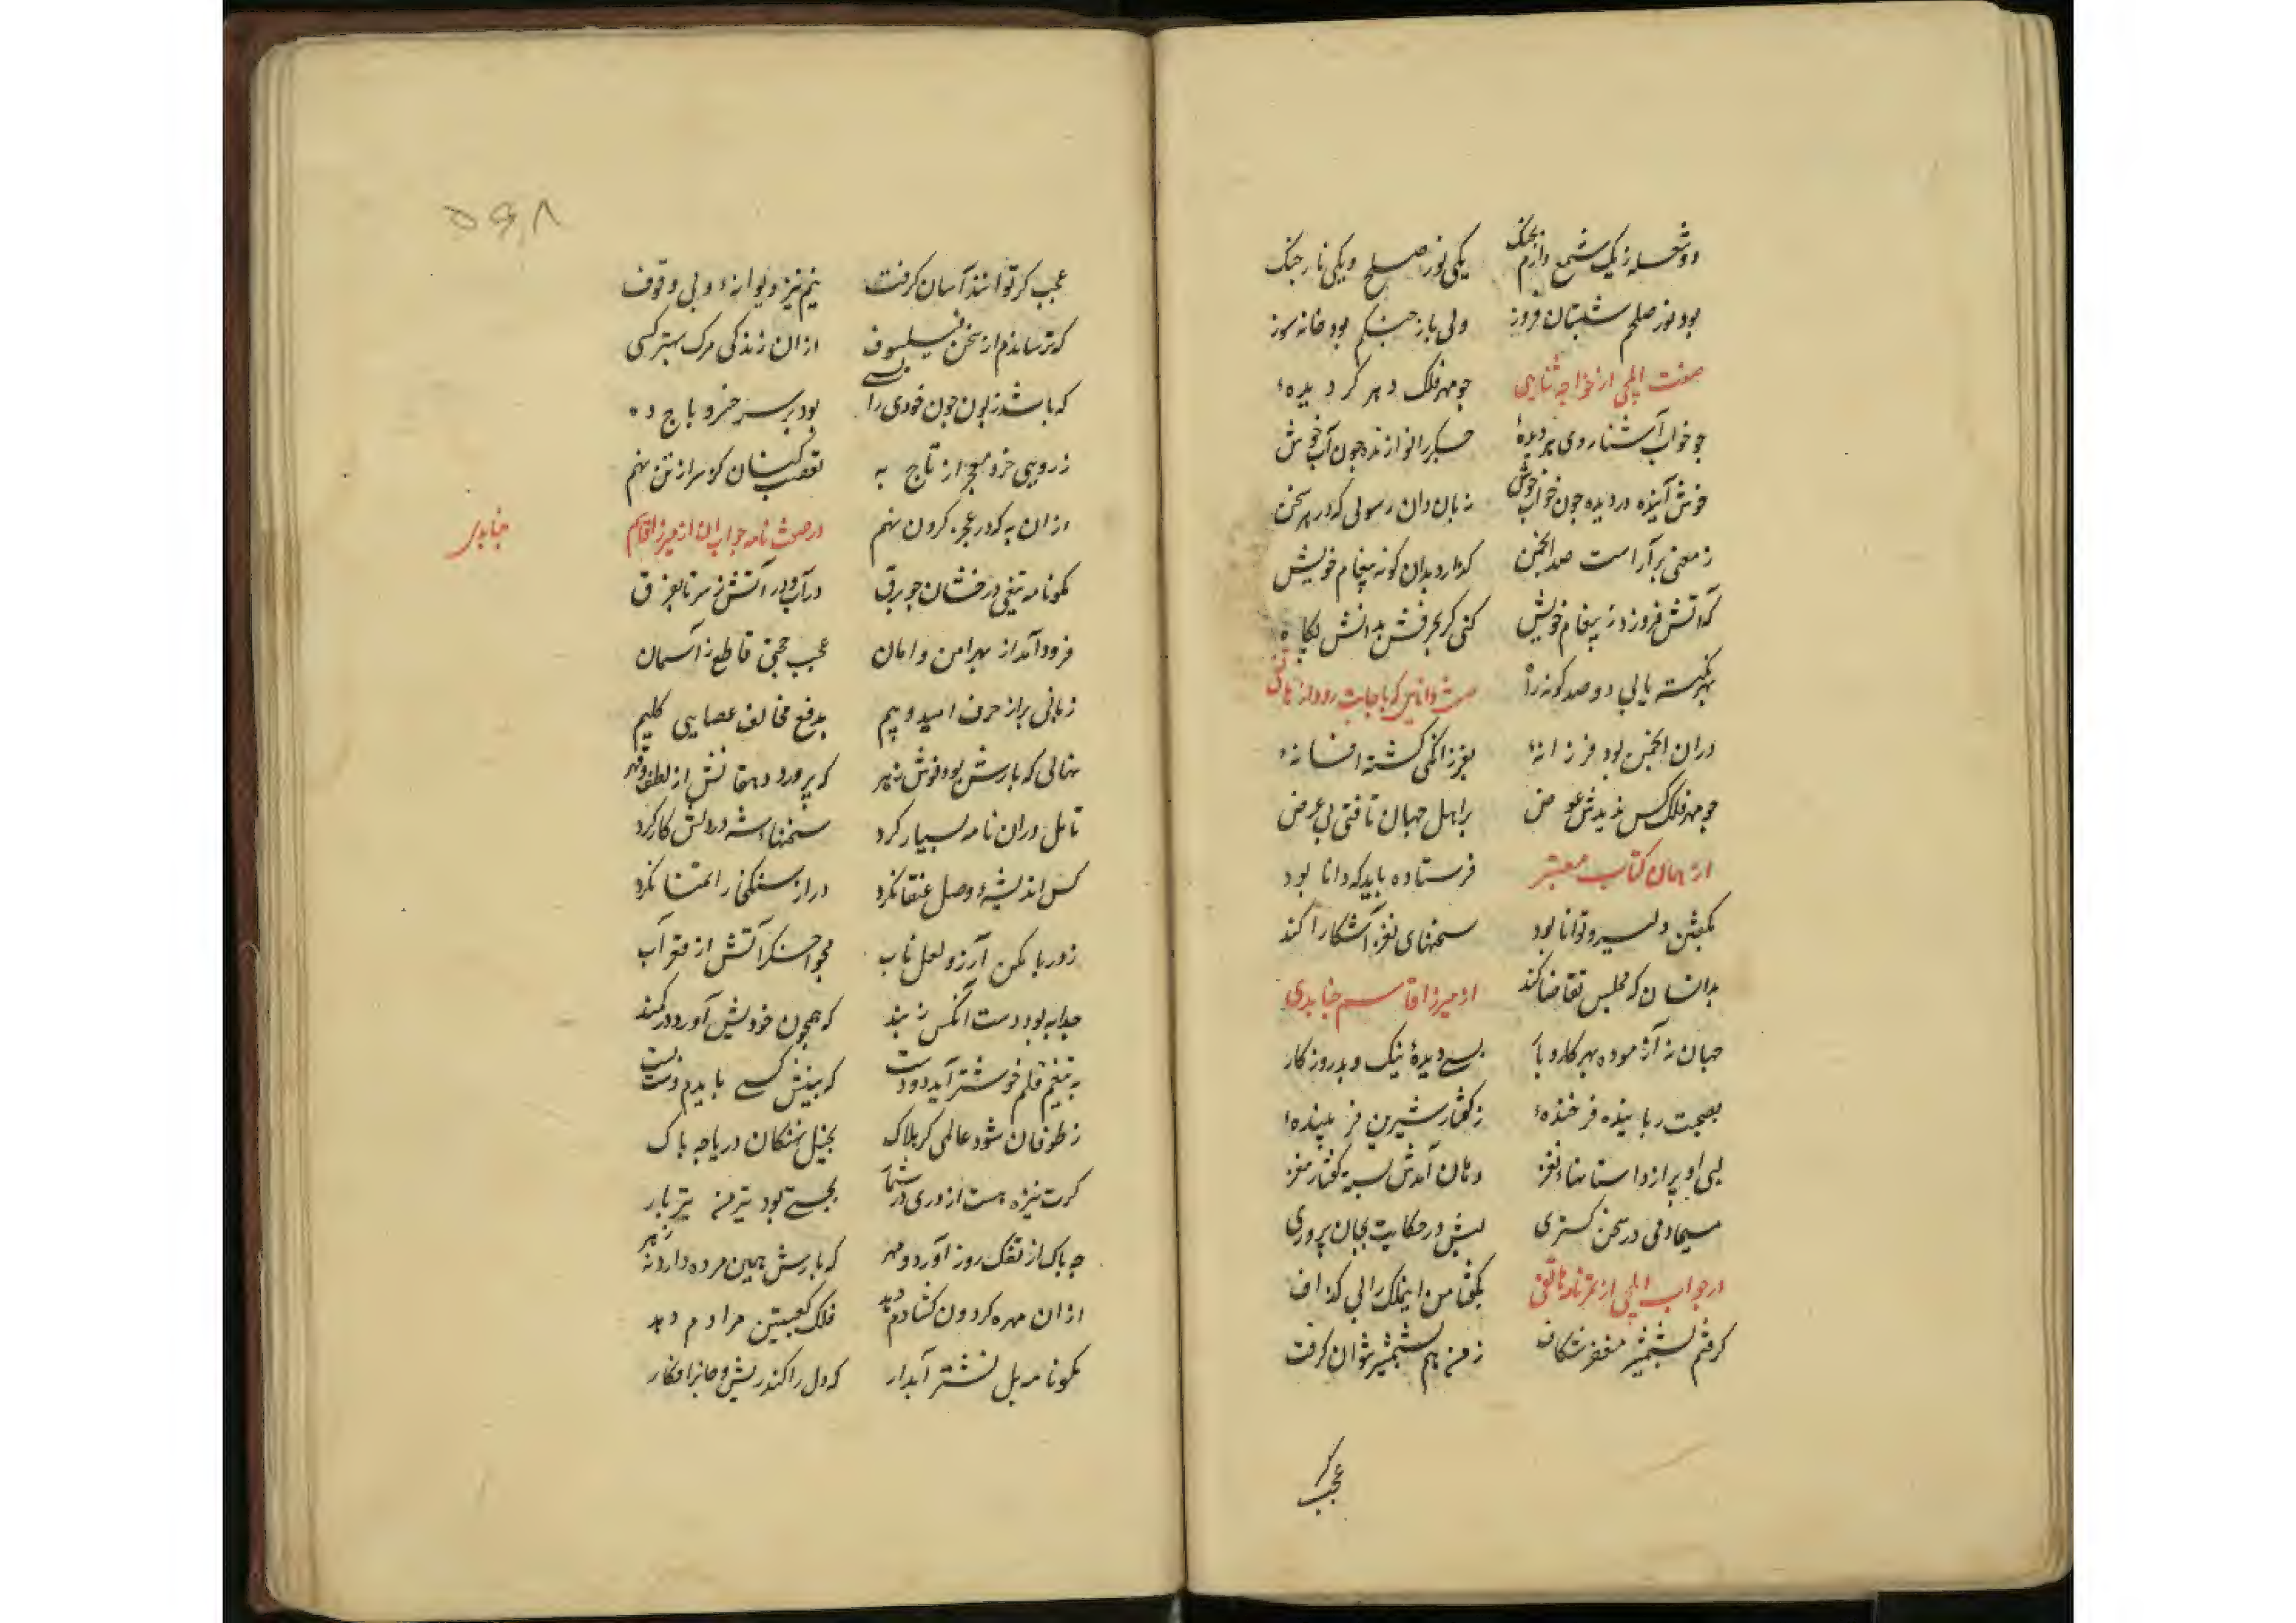 دو شعله ز یک شمع دارم بچنگ یکی نور صلح و یکی نار جنک
بود نور صلحم شبستان فروز ولی نار جنکم بود خانه سوز
صفت ایلچی از خواجه ثنایی چو مهر فلک دهر کردیدهٔ
چو خواب آشنا روی هر دیدهٔ جکر را نوازنده چون آب خوش
خوش آینده در دیده چون خواب خوش زبان دان رسولی که در هر سخن
ز معنی بر آراست صد انجمن کذارد بدان کونه پیغام خویش
که آتش فروزد ز پیغام خویش کنی کر بحرفش بدانش نکاه
بهر نکته یابی دو صد کونه راه که باجابت رود از هاتفی
دران انجمن بود فرزانهٔ بفرزانکی کشته افسانهٔ
چو مهر فلک کس ندیدش عوض بر اهل جهان تافتی بی غرض
از همان کتاب معتبر فرستاده باید که دانا بود
بکفتن دلیر و توانا بود سخنهای نغز آشکارا کند
بدانسان که مجلس تقاضا کند از میرزا قاسم جنابدی
جهان آزموده بهر کار و بار بسی دیدهٔ نیک و بد روزکار
بصحبت ربایندهٔ فرخندهٔ ز کفتار شیرین فریبندهٔ
لبی او پر از داستانهاء نغز دهان آمدش بسته کفتار مغز
مسیحا دمی در سخن کستری لبش در حکایت بجان پروری
در جواب ایلچی از تمرنامه هاتفی بکفتا من این ملک را بی کذاف
کرفتم بشمشیر مغفر شکاف ز من هم بشمشیر توان کرفت
عجب کر
۵۹۸
عجب کر تواند آسان کرفت نیم نیز دیوانهٔ و بی وقوف
که ترسانندم از سخن فیلسوف از ان زندکی مرک بهتر کسی
که باشد زبون چون خودی را بسی بود بر سر خسرو باج ده
ز روبی خرد میخ از تاج به تعصب کشان کر سر از تن نهم
از ان به که در عجز کردن نهم در صفت نامه جواب آن از میرزا قاسم جنابدی
مکو نامه تیغی درخشان چو برق در آب و در آتش ز سر تا بفرق
فرود آمد از بهر امن و امان عجب حجتی قاطع ز آسمان
زبانی پر از حرف امید و بیم بدفع مخالف عصایی کلیم
نهالی که بارش بود نوش زهر که پرورد دهقانش از لطف و قهر
تامل دران نامه بسیار کرد سخنهاء شه در دلش کار کرد
کس اندیشهٔ وصل عنقا نکرد در از سنک خارا تمنا نکرد
ز دریا مکن آرزو لعل ناب مجو اخکر آتش از قعر آب
جدا به بود دست آنکس ز بند که همچون خودیش آورد در کمند
به تیغم قلم خوشتر آید دو دست که بینش کسی بایدم دست بست
ز طوفان شود عالمی کر هلاک بخیل نهنکان دریا چه باک
کرت نیزه هست از دری در شمار بجستی بود تیر من تیر بار
چه باک از تفک روز آورد و مهر که بارش همین مرده دارد نه زهر
از ان مهره کردون کشادم دهد فلک کعبتین مرادم دهد
مکو نامه بل نشتر آبدار که دل را کند ریش و جانرا فکار